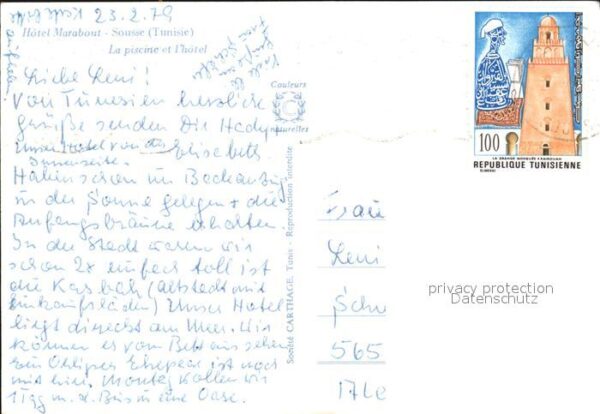 23.2.79
Hôtel Marabout - Sousse (Tunisie)
La piscine et l'hôtel
Liebe Leni!
Von Tunesien herzliche
Grüße senden Dir Hady u
Elisabeth
unser Hotel von der
Innenseite.
Haben schon im Badeanzug
in der Sonne gelegen + die
Anfangsbräune erhalten.
In der Stadt waren wir
schon 2x einfach toll ist
die Kasbah (Altstadt mit
Einkaufsläden) Unser Hotel
liegt direckt am Meer. Wir
können es vom Bett aus sehen
Ein Ehepaar ist noch
mit hier. Montag wollen wir
1 Tag m. d. Bus in eine Oase.
Couleurs
naturelles
Société CARTHAGE, Tunis - Reproduction interdite
100
LA GRANDE MOSQUÉE KAIROUAN
REPUBLIQUE TUNISIENNE
Frau
Leni
565
privacy protection
Datenschutz